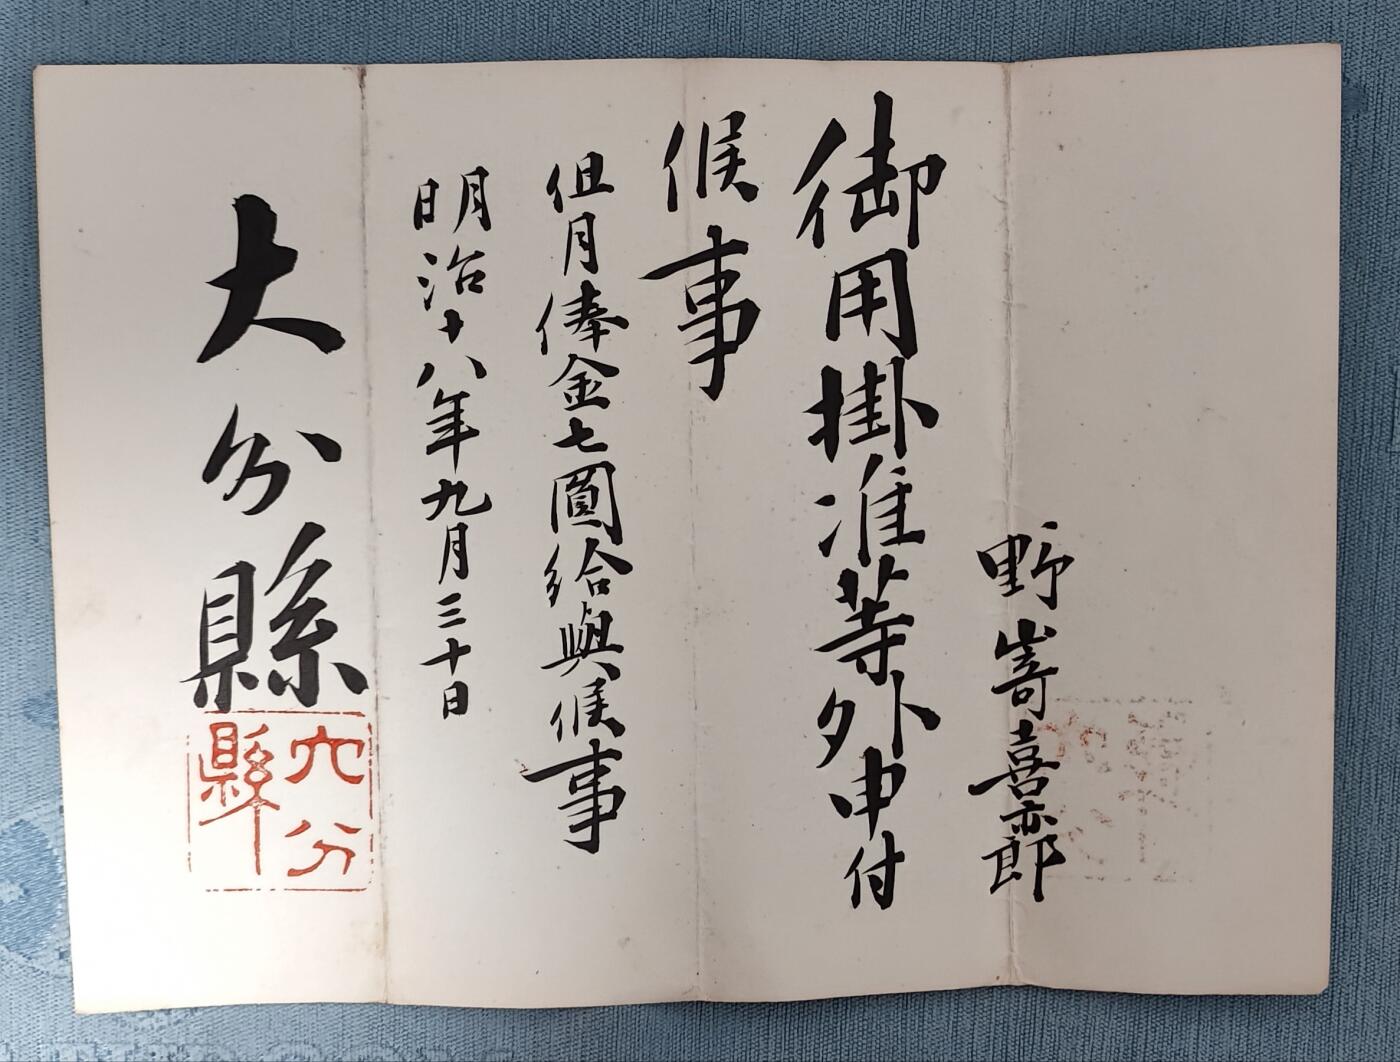 野嵜喜六郎
御用掛准等外申付
候事
但月俸金七圓給與候事
明治十八年九月三十日
大分縣
大分
縣